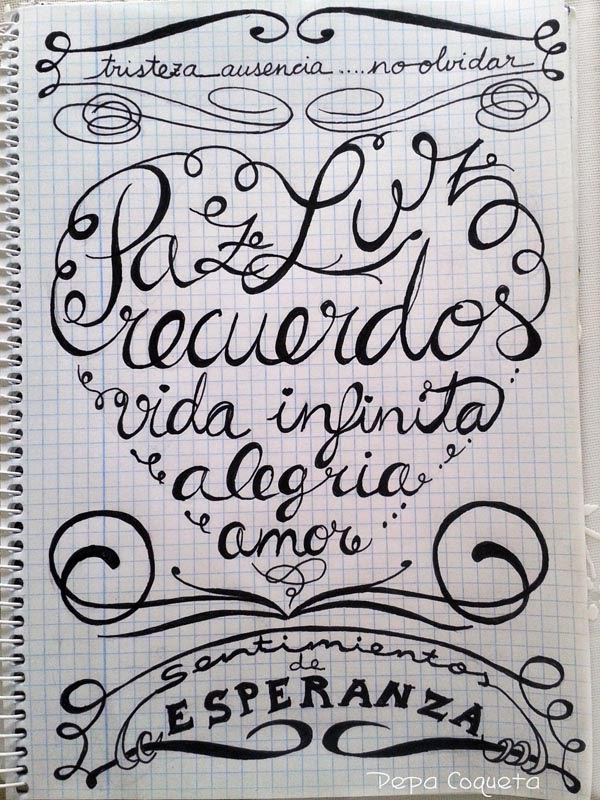 tristeza ausencia....no olvidar
Paz Luz
recuerdos
vida infinita
alegria
amor
Sentimientos
de
ESPERANZA
Pepa Coqueta